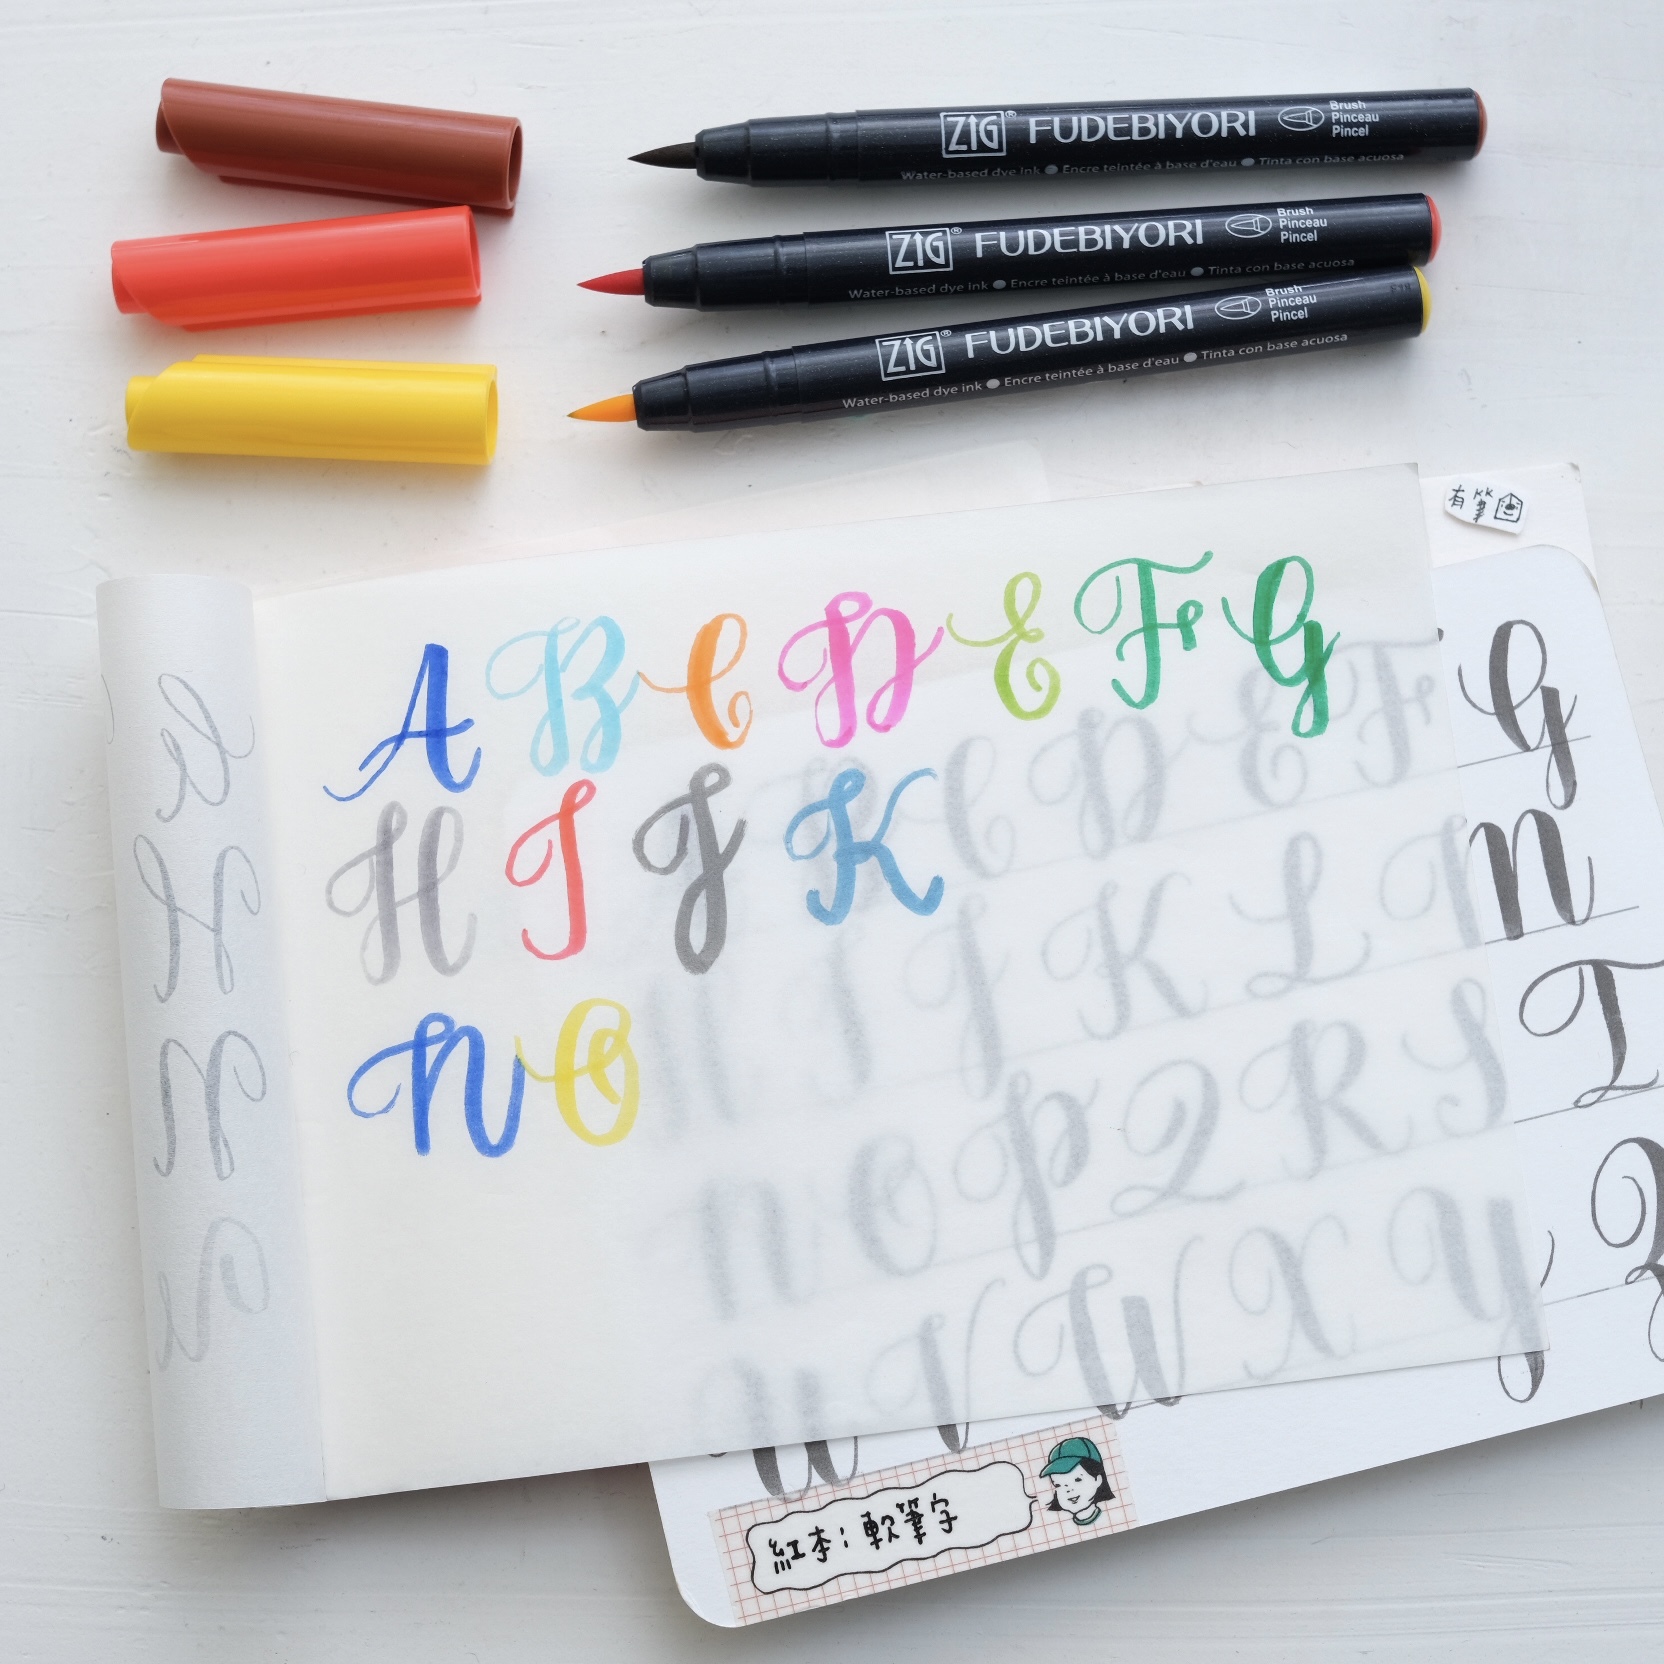 ZIG® FUDEBIYORI Brush
Pinceau
Pincel
Water-based dye ink ● Encre teintée à base d'eau ● Tinta con base acuosa
ZIG® FUDEBIYORI Brush
Pinceau
Pincel
Water-based dye ink ● Encre teintée à base d'eau ● Tinta con base acuosa
ZIG® FUDEBIYORI Brush
Pinceau
Pincel
Water-based dye ink ● Encre teintée à base d'eau ● Tinta con base acuosa
有筆
A B C D E F G
H I J K
N O
C D E F G
H I J K L N
N O P Q R S T
U V W X Y Z
紅本：軟筆字